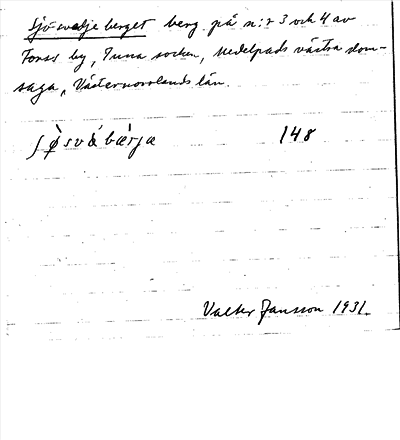 Sjösvaljeberget berg på n:r 3 och 4 av
by, Tuna socken, Medelpads västra dom-
saga, Västernorrlands län.
148
Valter Jansson 1931.